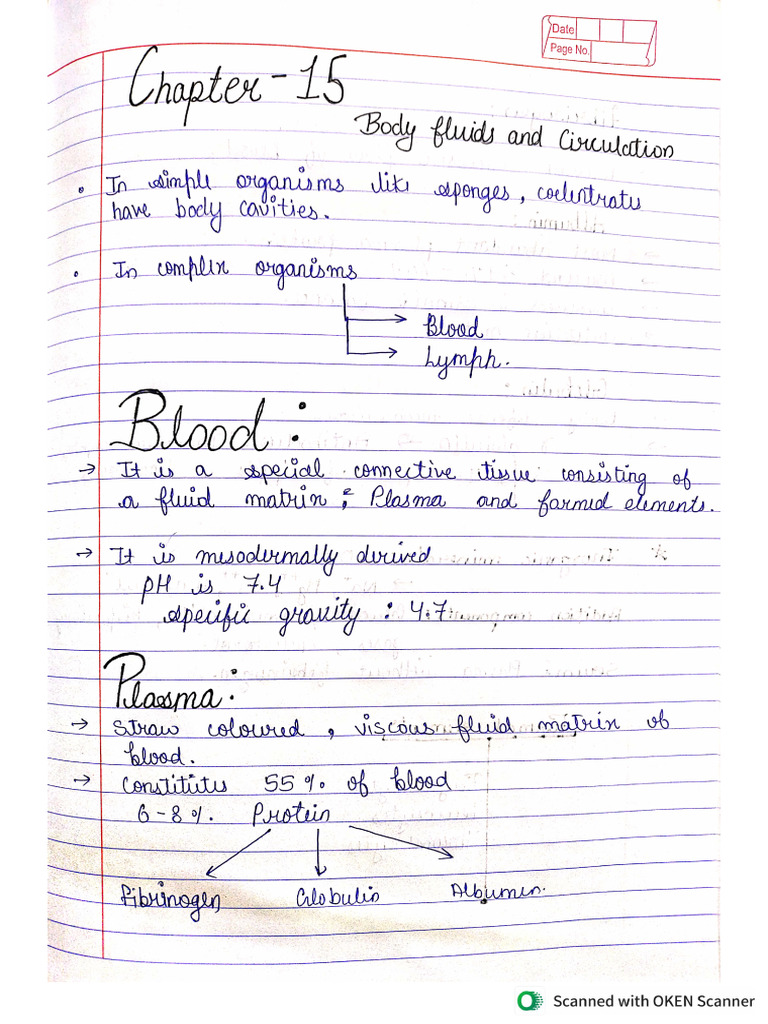 Date
Page No.
Chapter-15
Body fluids and Circulation
• In simple organisms like sponges, coelentrates
have body cavities.
• In complex organisms
→ Blood
→ Lymph.
Blood :
→ It is a special connective tissue consisting of
a fluid matrix ; Plasma and formed elements.
→ It is mesodermally derived
pH is 7.4
specific gravity : 4.7
Plasma :
→ Straw coloured , viscous fluid matrix of
blood.
→ Constitutes 55 % of blood
6-8 %. Protein
Fibrinogen Globulin Albumen.
Scanned with OKEN Scanner